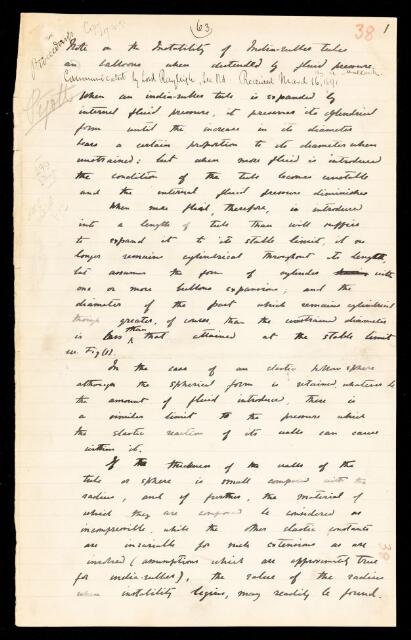 63
38
1
Note on the Instability of India-rubber tubes
and balloons when distended by fluid pressure.
Communicated by Lord Rayleigh, Sec R.S. Received March 16, 1891
When an india-rubber tube is expanded by
internal fluid pressure, it preserves its cylindrical
form until the increase in its diameter
bears a certain proportion to its diameter when
unstrained: but when more fluid is introduced
the condition of the tube becomes unstable
and the internal fluid pressure diminishes
When more fluid, therefore, is introduced
into a length of tube than will suffice
to expand it to its stable limit, it no
longer remains cylindrical throughout its length,
but assumes the form of cylinder with
one or more bulbous expansions; and the
diameter of the part which remains cylindrical
though greater, of course, than the unstrained diameter
is less than that attained at the stable limit
see Fig (1).
In the case of an elastic hollow sphere
although the spherical form is retained whatever be
the amount of fluid introduced, there is
a similar limit to the pressure which
the elastic reaction of its walls can cause
within it.
If the thickness of the walls of the
tube or sphere is small compared with the
radius, and if further, the material of
which they are composed be considered as
incompressible, while the other elastic constants
are invariable for such extensions as are
involved (assumptions which are approximately true
for india-rubber), the value of the radius
when instability begins, may readily be found.
38